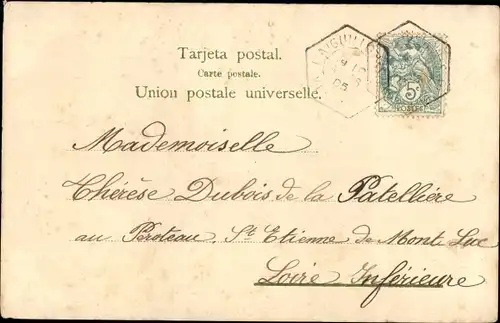 Tarjeta postal.
Carte postale.
Union postale universelle.
5c
POSTES
Mademoiselle
Thérèse Dubois de la Patellière
au Peroteau. St Etienne de Mont Luc
Loire Inférieure